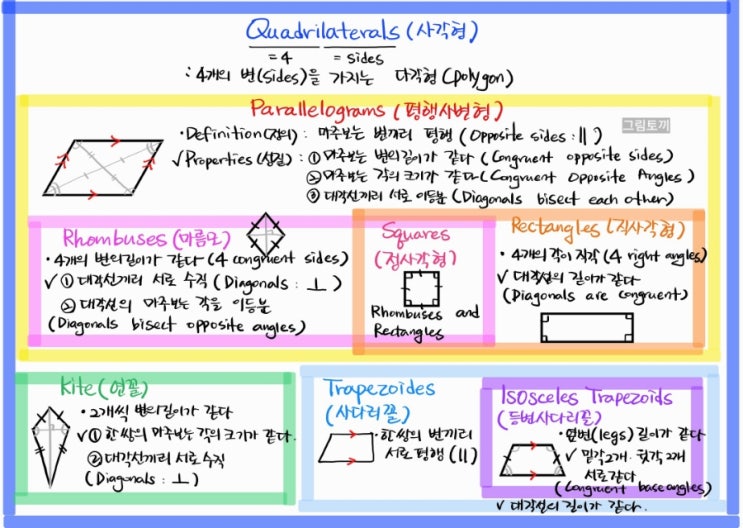 Quadrilaterals (사각형)
= 4 = sides
: 4개의 변(sides)을 가지는 다각형 (polygon)
Parallelograms (평행사변형)
• Definition(정의) : 마주보는 변끼리 평행 (Opposite sides : ||)
그림토끼
✓ Properties (성질) : ① 마주보는 변의 길이가 같다 (Congruent opposite sides)
② 마주보는 각의 크기가 같다 (Congruent Opposite Angles)
③ 대각선끼리 서로 이등분 (Diagonals bisect each other)
Rhombuses (마름모)
• 4개의 변의 길이가 같다 (4 congruent sides)
✓ ① 대각선끼리 서로 수직 (Diagonals : ⊥)
② 대각선의 마주보는 각을 이등분
(Diagonals bisect opposite angles)
Squares
(정사각형)
Rhombuses and
Rectangles
Rectangles (직사각형)
• 4개의 각이 직각 (4 right angles)
✓ 대각선의 길이가 같다
(Diagonals are congruent)
Kite (연꼴)
• 2개씩 변의 길이가 같다
✓ ① 한 쌍의 마주보는 각의 크기가 같다.
② 대각선끼리 서로 수직
(Diagonals : ⊥)
Trapezoides
(사다리꼴)
• 한 쌍의 변끼리
서로 평행 (||)
Isosceles Trapezoids
(등변사다리꼴)
• 옆변(legs) 길이가 같다
✓ 밑각 2개. 윗각 2개
서로 같다
(Congruent base angles)
✓ 대각선의 길이가 같다.